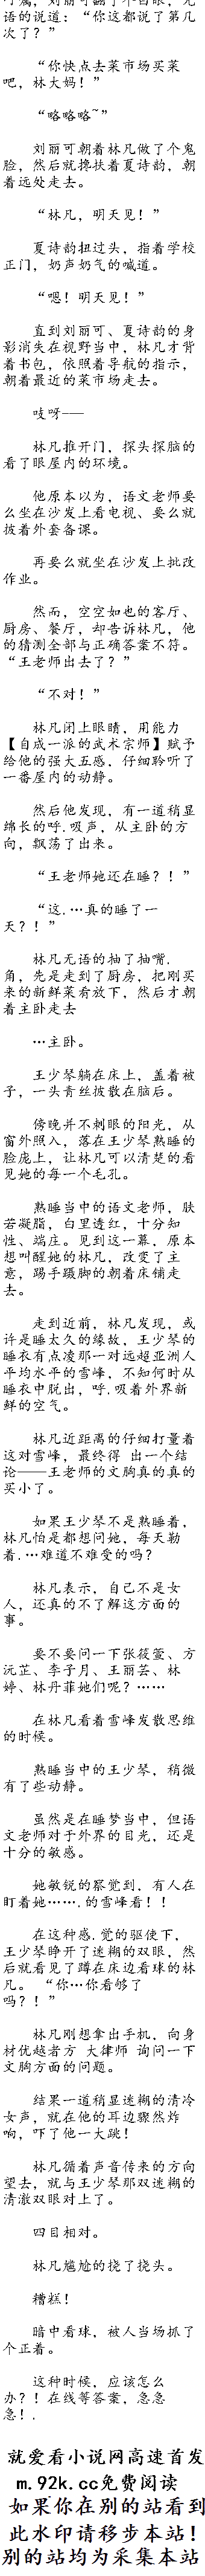 叮嘱，刘丽可翻了个白眼，无
语的说道：“你这都说了第几
次了？”
“你快点去菜市场买菜
吧，林大妈！”
“略略略~”
刘丽可朝着林凡做了个鬼
脸，然后就搀扶着夏诗韵，朝
着远处走去。
“林凡，明天见！”
夏诗韵扭过头，指着学校
正门，奶声奶气的喊道。
“嗯！明天见！”
直到刘丽可、夏诗韵的身
影消失在视野当中，林凡才背
着书包，依照着导航的指示，
朝着最近的菜市场走去。
吱呀——
林凡推开门，探头探脑的
看了眼屋内的环境。
他原本以为，语文老师要
么坐在沙发上看电视、要么就
披着外套备课。
再要么就坐在沙发上批改
作业。
然而，空空如也的客厅、
厨房、餐厅，却告诉林凡，他
的猜测全部与正确答案不符。
“王老师出去了？”
“不对！”
林凡闭上眼睛，用能力
【自成一派的武术宗师】赋予
给他的强大五感，仔细聆听了
一番屋内的动静。
然后他发现，有一道稍显
绵长的呼.吸声，从主卧的方
向，飘荡了出来。
“王老师她还在睡？！”
“这.…真的睡了一
天？！”
林凡无语的抽了抽嘴.
角，先是走到了厨房，把刚买
来的新鲜菜肴放下，然后才朝
着主卧走去
…主卧。
王少琴躺在床上，盖着被
子，一头青丝披散在脑后。
傍晚并不刺眼的阳光，从
窗外照入，落在王少琴熟睡的
脸庞上，让林凡可以清楚的看
见她的每一个毛孔。
熟睡当中的语文老师，肤
若凝脂，白里透红，十分知
性、端庄。见到这一幕，原本
想叫醒她的林凡，改变了主
意，蹑手蹑脚的朝着床铺走
去。
走到近前，林凡发现，或
许是睡太久的缘故，王少琴的
睡衣有点凌那一对远超亚洲人
平均水平的雪峰，不知何时从
睡衣中脱出，呼.吸着外界新
鲜的空气。
林凡近距离的仔细打量着
这对雪峰，最终得 出一个结
论——王老师的文胸真的真的
买小了。
如果王少琴不是熟睡着，
林凡怕是都想问她，每天勒
着.…难道不难受的吗？
林凡表示，自己不是女
人，还真的不了解这方面的
事。
要不要问一下张筱萱、方
沅芷、李子月、王丽芸、林
婷、林丹菲她们呢？……
在林凡看着雪峰发散思维
的时候。
熟睡当中的王少琴，稍微
有了些动静。
虽然是在睡梦当中，但语
文老师对于外界的目光，还是
十分的敏感。
她敏锐的察觉到，有人在
盯着她…….的雪峰看！！
在这种感.觉的驱使下，
王少琴睁开了迷糊的双眼，然
后就看见了蹲在床边看球的林
凡。 “你…你看够了
吗？！”
林凡刚想拿出手机，向身
材优越者方 大律师 询问一下
文胸方面的问题。
结果一道稍显迷糊的清冷
女声，就在他的耳边骤然炸
响，吓了他一大跳！
林凡循着声音传来的方向
望去，就与王少琴那双迷糊的
清澈双眼对上了。
四目相对。
林凡尴尬的挠了挠头。
糟糕！
暗中看球，被人当场抓了
个正着。
这种时候，应该怎么
办？！在线等答案，急急
急！.
就爱看小说网高速首发
m.92k.cc免费阅读
如果你在别的站看到
此水印请移步本站！
别的站均为采集本站